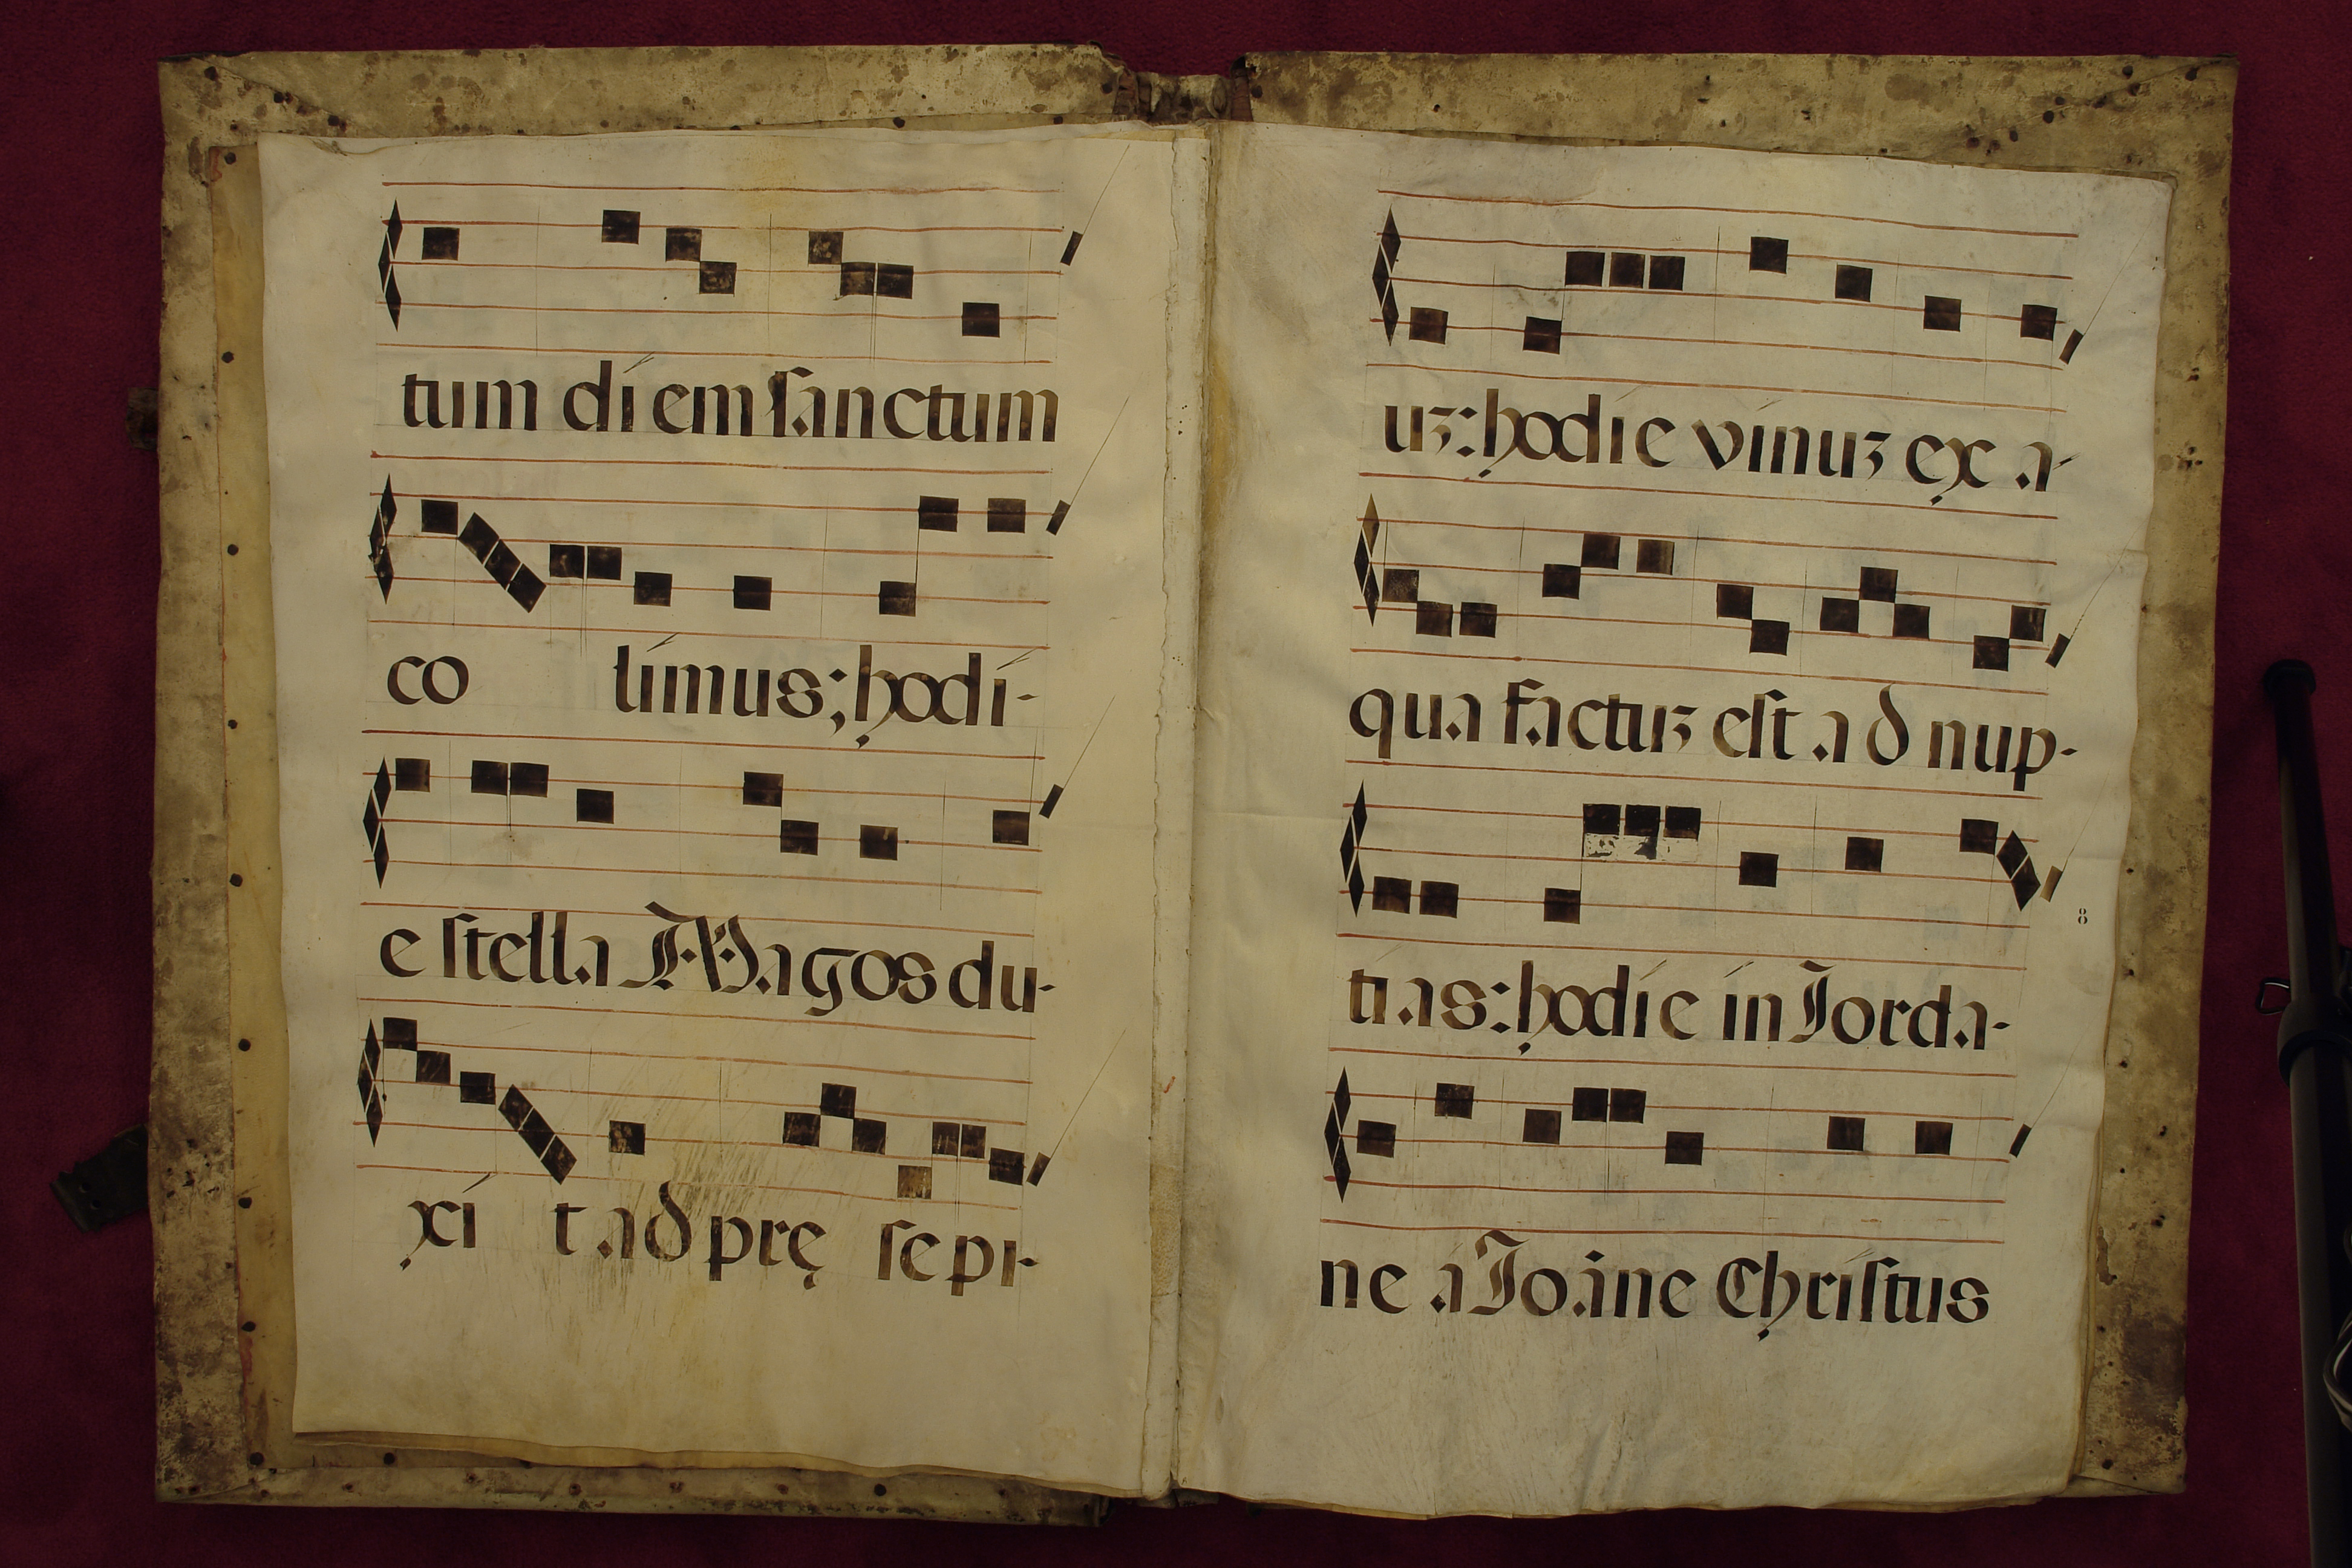 tum diem sanctum
co limus; hodi-
e stella Magos du-
xi t ad prę sepi-
uʒ: hodie vinuʒ ex a-
qua factuʒ est ad nup-
tias: hodie in Iorda-
ne a Ioane Christus
8